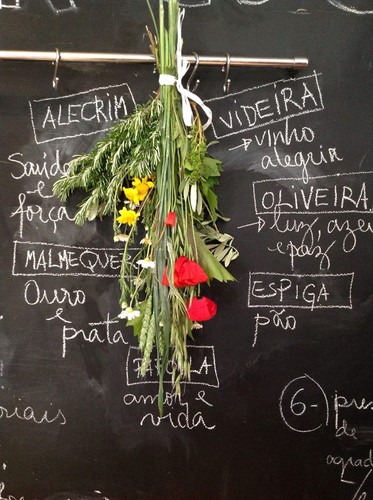 ALECRIM
Saúde
e
força
VIDEIRA
→ vinho
alegria
OLIVEIRA
→ luz, azei
e paz
MALMEQUER
Ouro
e
prata
ESPIGA
pão
amor e
vida
6- pres
de
agrad
riais